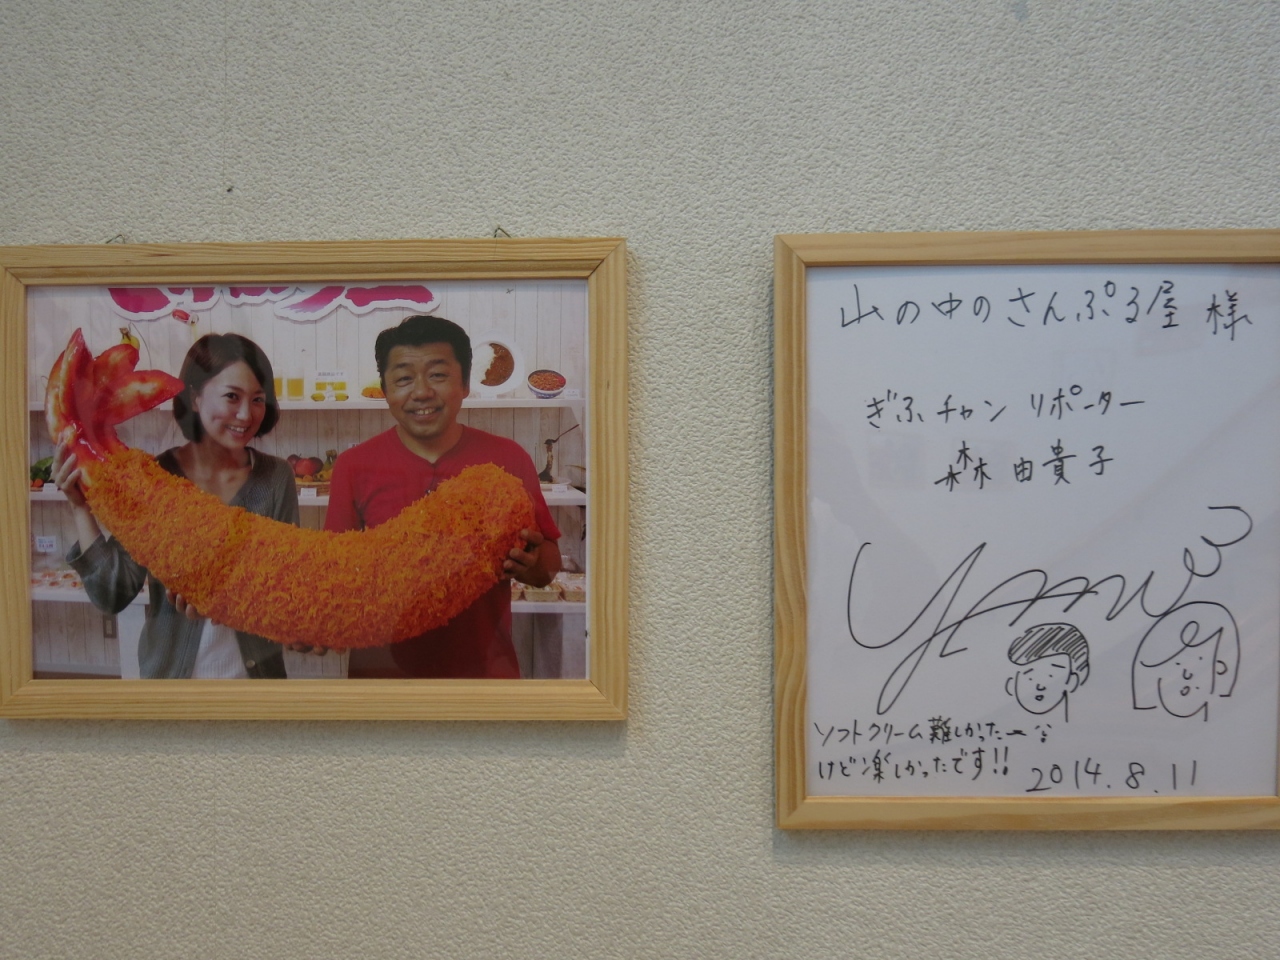 山の中のさんぷる屋 様
ぎふチャン リポーター
森 由貴子
ソフトクリーム難しかったー
けど楽しかったです!!
2014.8.11